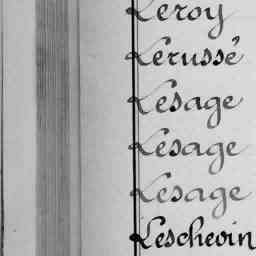 Leroy
Lerussé
Lesage
Lesage
Lesage
Leschevin